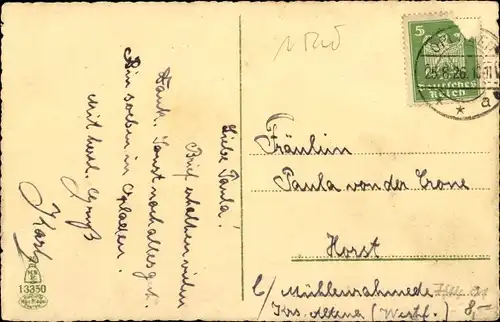 Liebe Paula!
Brief erhalten vielen
Dank. Sonst noch alles gut.
Bin soeben in Opladen.
Mit herzl. Gruß
Fräulein
Paula von der Crone
Horst
b/ Mühlenrahmede
Krs. Altena (Westf.)
8,-
5
Deutsches
Reich
OPLADEN
25.8.26.
* * a
13350